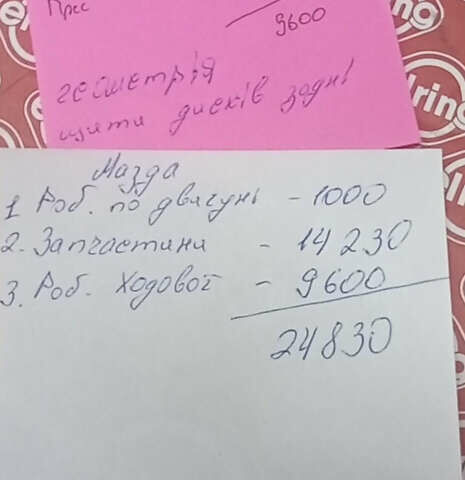 Прес
9600
геометрія
щити дисків задні
Мазда
1. Роб. по двигуні - 1000
2. Запчастини - 14 230
3. Роб. Ходової - 9600
24830
elring